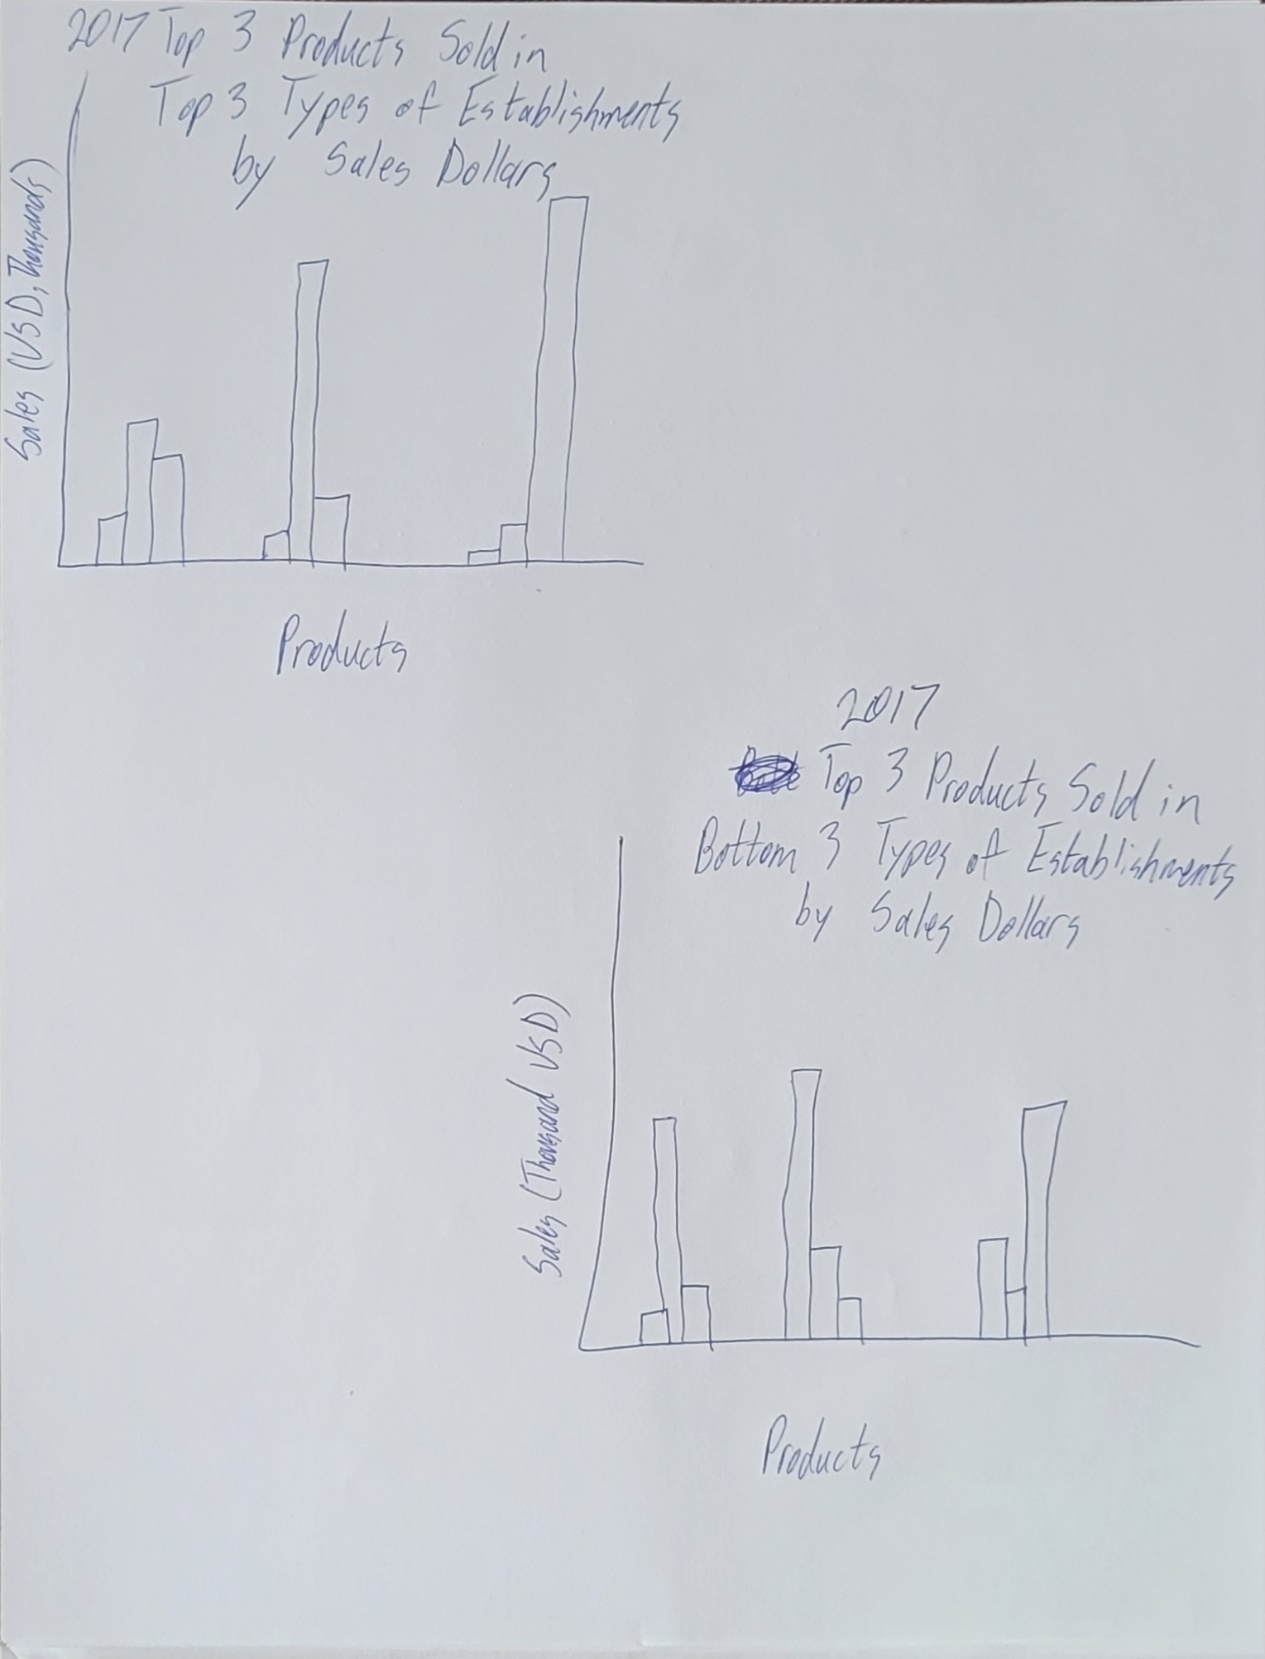 2017 Top 3 Products Sold in
Top 3 Types of Establishments
by Sales Dollars
Sales (USD, Thousands)
Products
2017
Top 3 Products Sold in
Bottom 3 Types of Establishments
by Sales Dollars
Sales (Thousand USD)
Products